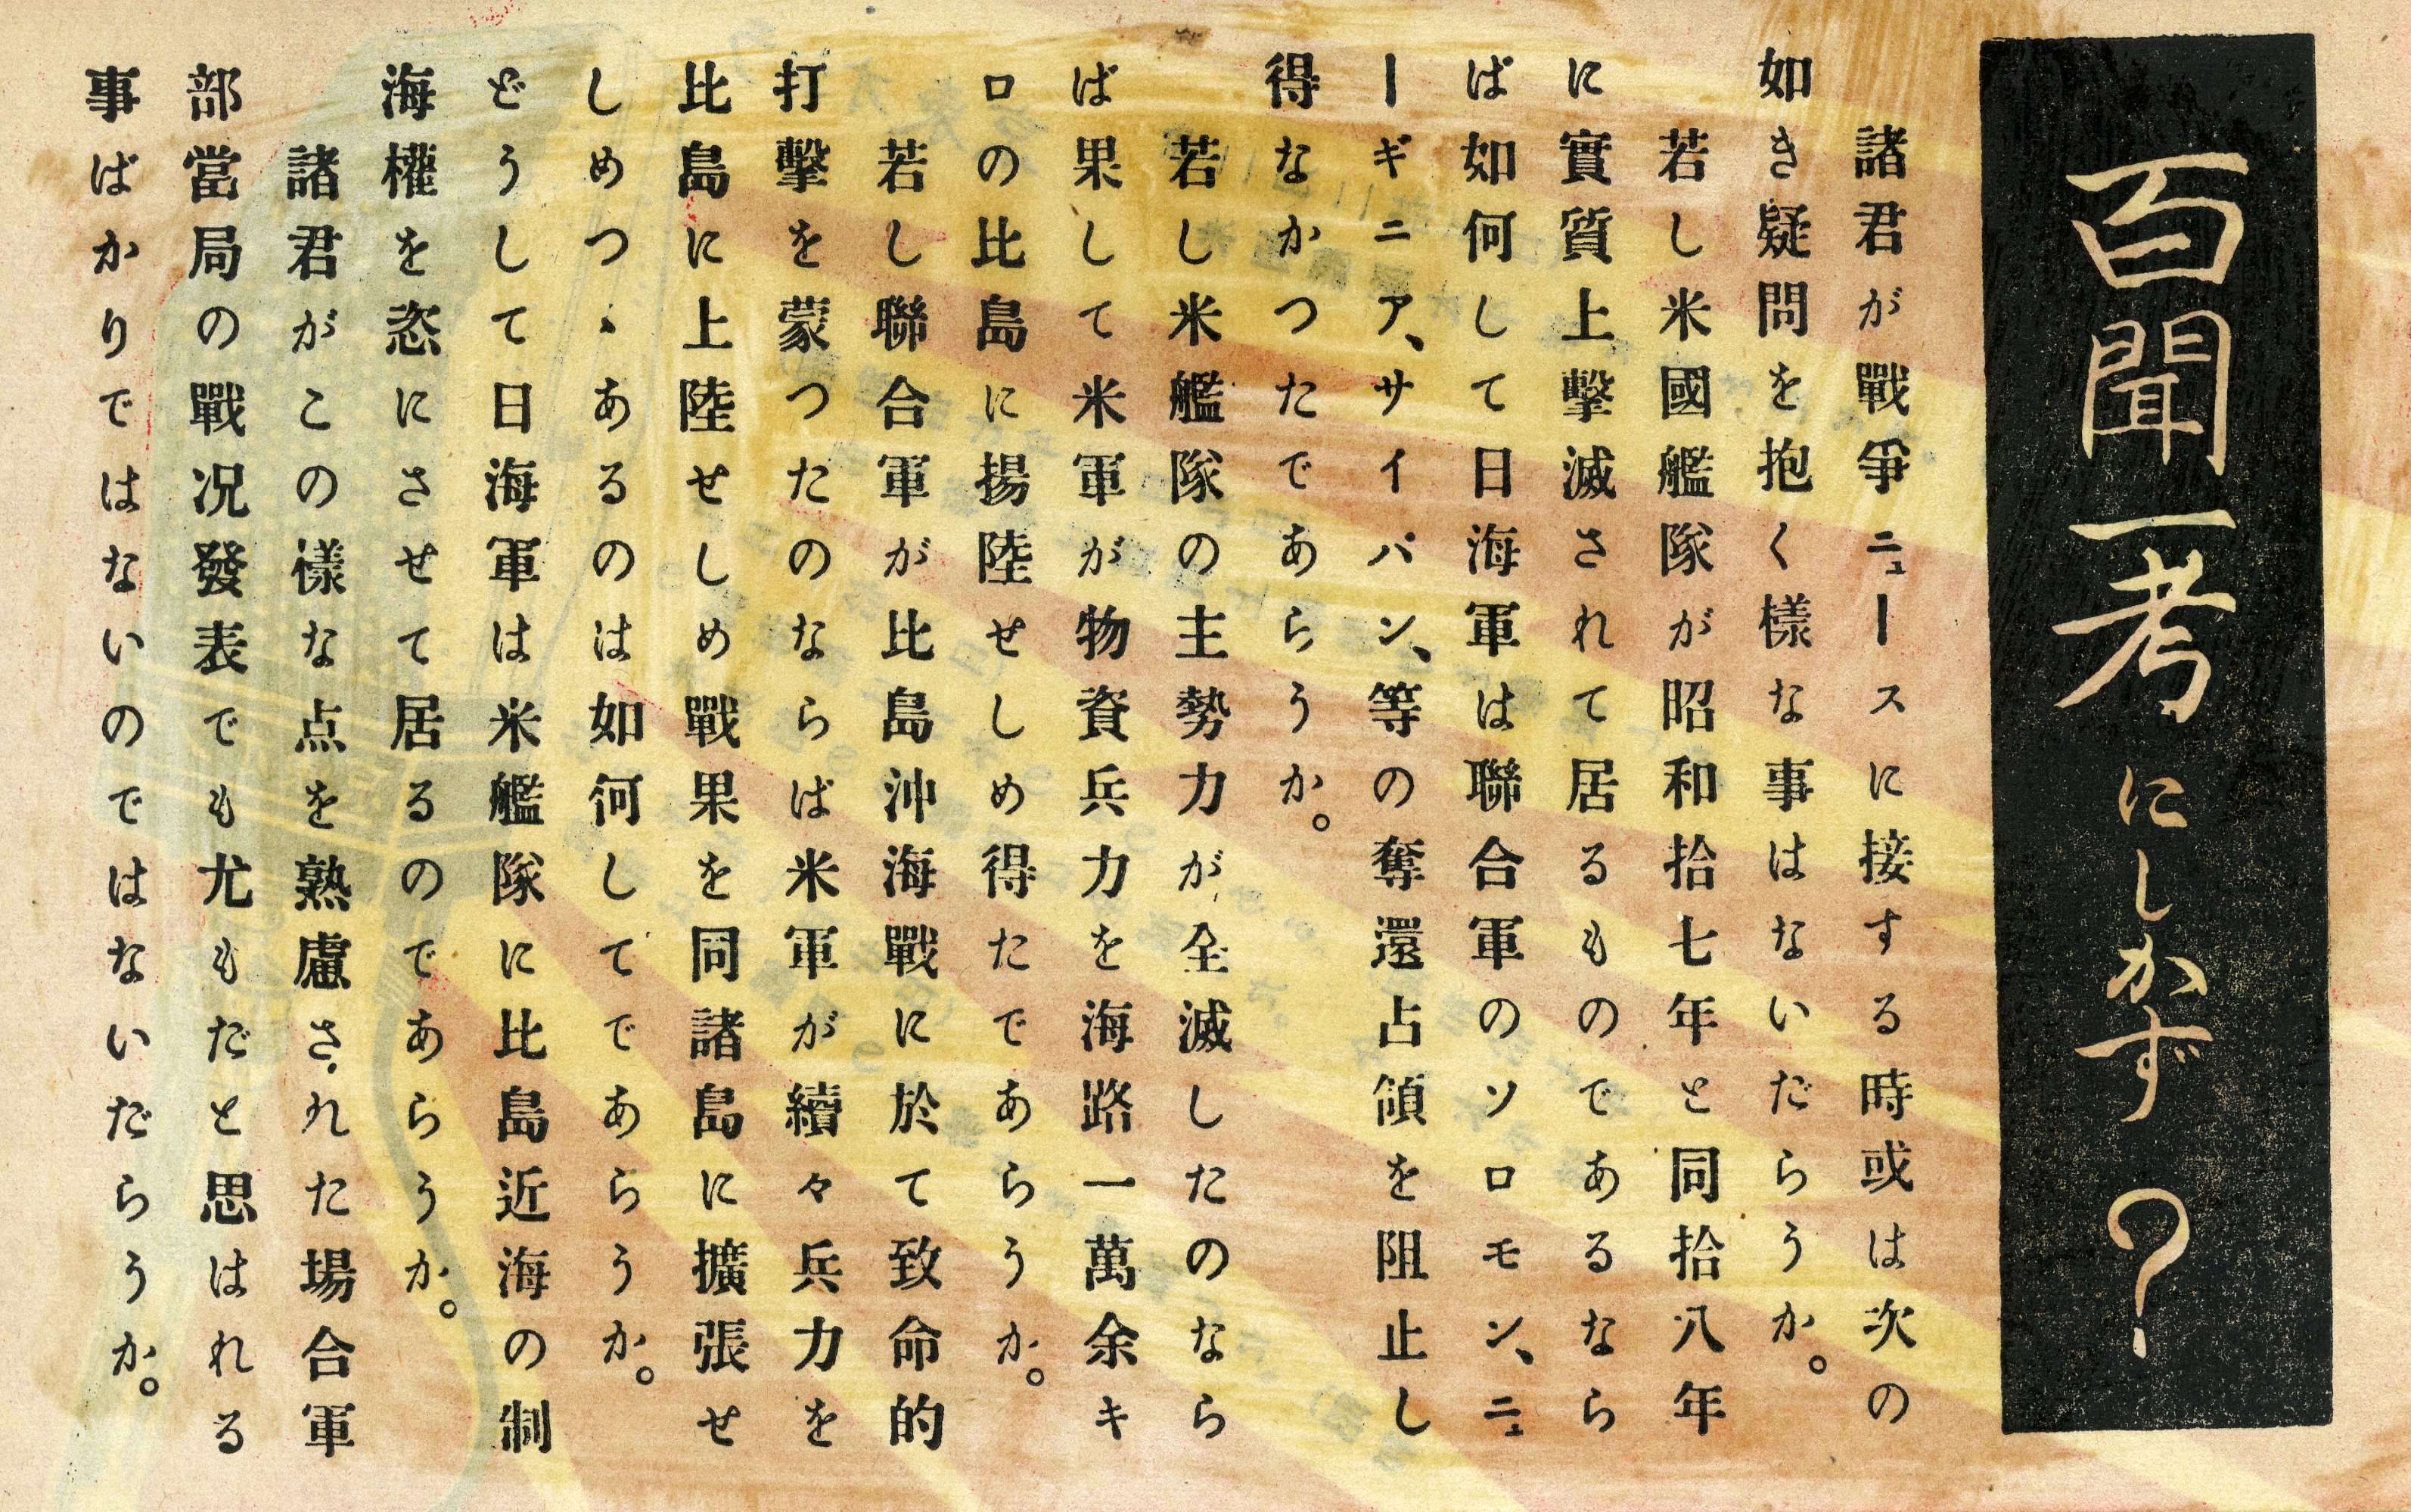 百聞一考にしかず?
諸君が戰爭ニュースに接する時或は次の
如き疑問を抱く樣な事はないだらうか。
若し米國艦隊が昭和拾七年と同拾八年
に實質上擊滅されて居るものであるなら
ば如何して日海軍は聯合軍のソロモン、ニュ
ーギニア、サイパン、等の奪還占領を阻止し
得なかつたであらうか。
若し米艦隊の主勢力が全滅したのなら
ば果して米軍が物資兵力を海路一萬余キ
ロの比島に揚陸せしめ得たであらうか。
若し聯合軍が比島沖海戰に於て致命的
打擊を蒙つたのならば米軍が續々兵力を
比島に上陸せしめ戰果を同諸島に擴張せ
しめつゝあるのは如何してであらうか。
どうして日海軍は米艦隊に比島近海の制
海權を恣にさせて居るのであらうか。
諸君がこの樣な点を熟慮された場合軍
部當局の戰况發表でも尤もだと思はれる
事ばかりではないのではないだらうか。